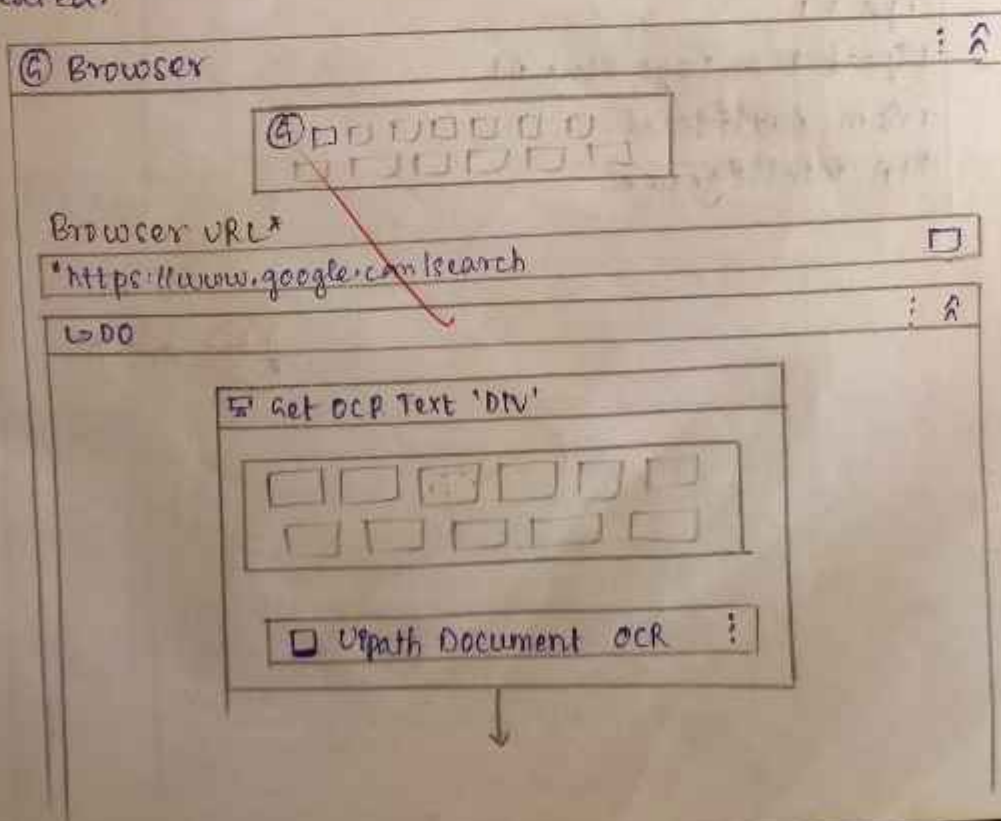 G Browser
G
Browser URL*
"https://www.google.com/search
DO
Get OCR Text 'DIV'
Uipath Document OCR